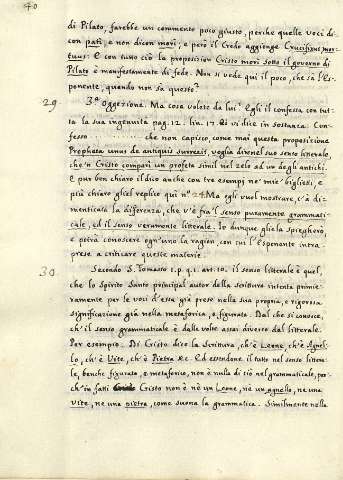 40
di Pilato, farebbe un commento poco giusto, perche quelle voci di=
con patì, e non dicon morì; e però il Credo aggionge Crucifixus mor=
tuus: E con tutto ciò la proposizion Cristo morì sotto il governo di
Pilato è manifestamente di fede. Non si vede qui il poco, che sà l'Es=
ponente, quando non sà questo?
29. 3.ª Oggezione. Ma cosa volete da lui? Egli il confessa con tut=
ta la sua ingenuità pag. 12. lin. 17. Ei vi dice in sostanza: Con=
fesso .......... che non capisco, come mai questa proposizione
Propheta unus de antiquis surrexit, voglia dire nel suo senso litterale,
che'n Cristo comparì un profeta simil nel zelo ad un degli antichi.
E pur ben chiaro il dico anche con tre esempj ne' miei bigliesi, e
più chiaro gliel replico qui nº 24. Ma egli vuol mostrare, c'à di=
menticata la differenza, che v'è fra'l senso puramente grammati=
cale, ed il senso veramente litterale. Io dunque gliela spiegherò,
e potrà conoscere ogn'uno la ragion, con cui l'Esponente intra=
prese a criticare queste materie.
30. Secondo S. Tomasso 1. p. q. 1. art. 10. il senso litterale è quel,
che lo Spirito Santo principal autor della Scrittura intenta prime=
ramente per le voci d'essa già prese nella sua propria, e rigorosa
significazione già nella metaforica, o figurata. Dal che si conosce,
ch'il senso grammaticale è dalle volte assai diverso dal litterale.
Per esempio. Di Cristo dice la Scrittura, ch'è Leone, ch'è Agnel=
lo, ch'è Vite, ch'è Pietra &c. Ed essendone il tutto nel senso litter=
le, benche figurato, e metaforico, non è nulla di ciò nel grammaticale, per=
ch'in fatti Cristo non è nè un Leone, nè un agnello, ne una
vite, ne una pietra, come suona la grammatica. Similmente nella